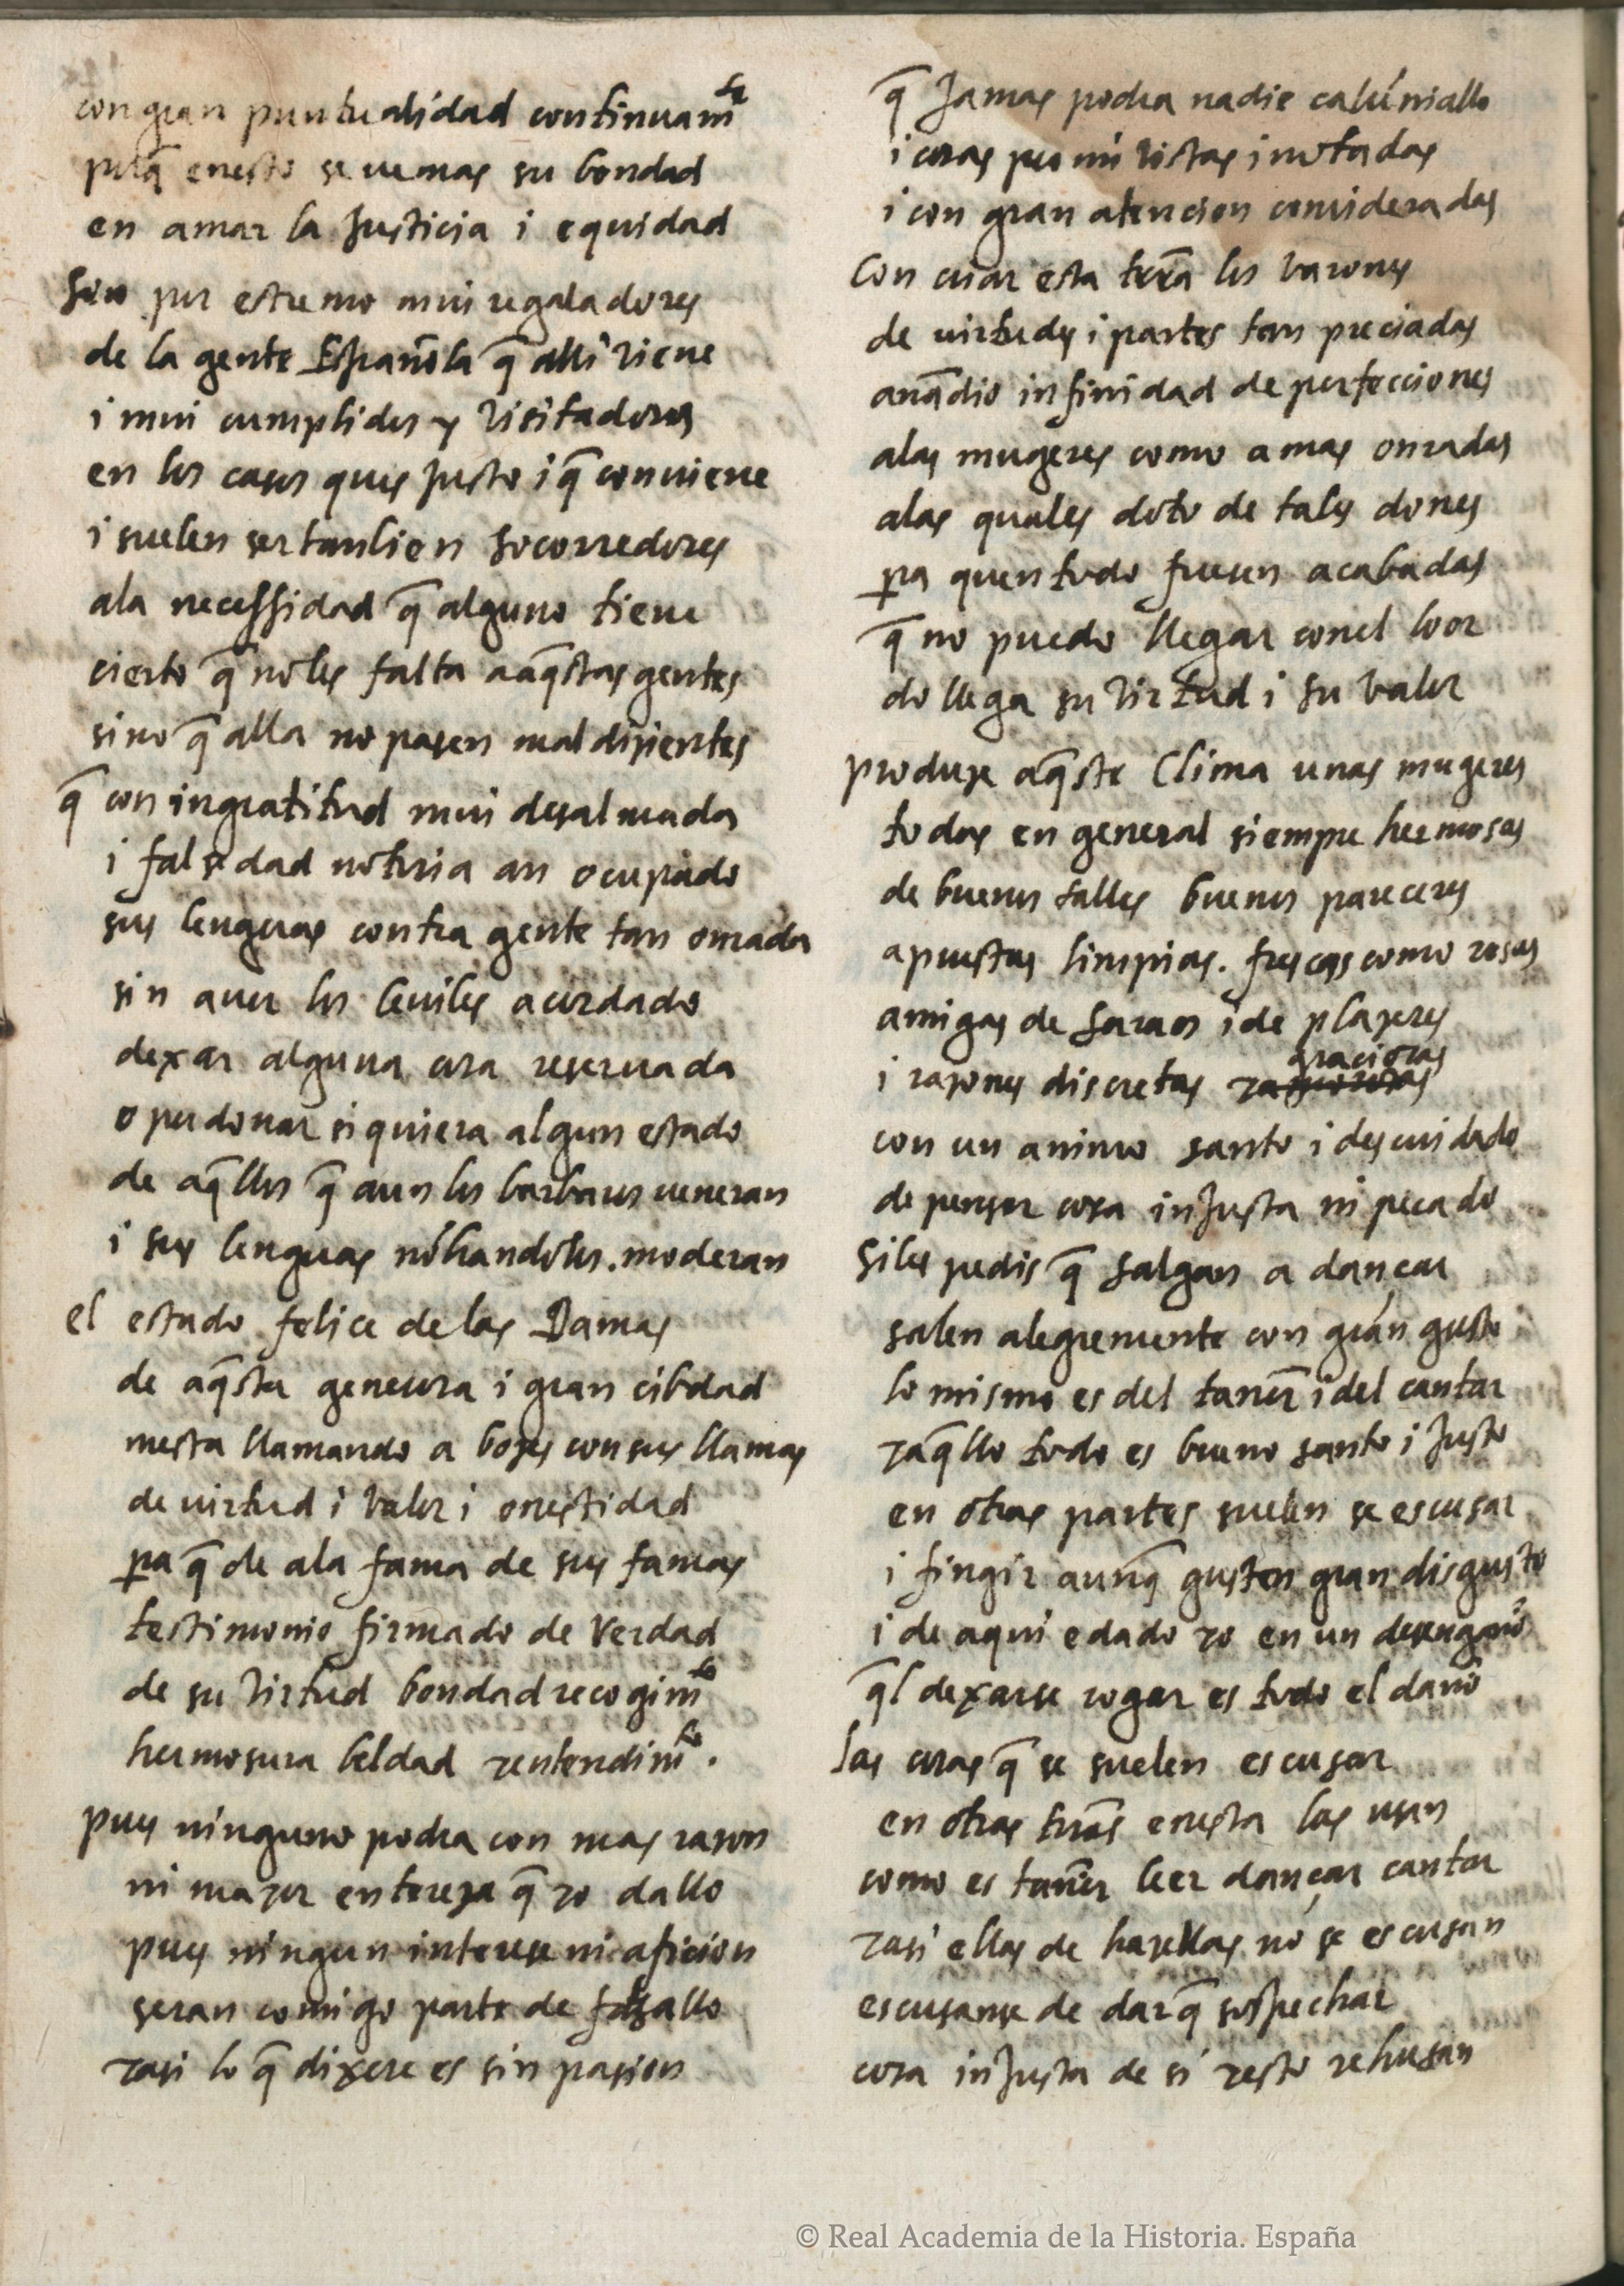 con gran puntualidad continuamte
porq̄ enesto se ve mas su bondad
en amar la Justicia i equidad
Son por estremo mui regaladores
de la gente Española q̄ alli viene
i mui cumplidos y visitadores
en los casos ques Justo i q̄ conviene
i suelen ser tanbien socorredores
ala necessidad q̄ alguno tiene
cierto q̄ noles falta aaq̄stas gentes
sino q̄ alla no pasen mal dizientes
q̄ con ingratitud mui desalmada
i falsedad notoria an ocupado
sus lenguas contra gente tan onrada
sin aver los seviles acordado
dexar alguna cosa reservada
o perdonar si quiera algun estado
de aq̄llos q̄ aun los barbaros veneran
i sus lenguas nóhandoles. moderan
el estado felice de las Damas
de aq̄sta generosa i gran cibdad
mesta llamando a bozes con sus llamas
de virtud i valor i onestidad
pa q̄ de ala fama de sus famas
testimonio firmado de verdad
de su virtud bondad recogimto
hermosura beldad yentendimto.
pues ninguno podra con mas razon
ni mayor entereza q̄ yo dallo
pues ningun interese ni aficion
seran comigo parte de
yasi lo q̄ dixere es sin pasion
q̄ Jamas podra nadie calúniallo
i cosas por mi vistas i notadas
i con gran atencion consideradas
Con criar esta trr̄a los varones
de virtudes i partes tan preciadas
anq̄dio infinidad de perfecciones
alas mugeres como a mas onradas
alas quales doto de tales dones
pa quen todo fuesen acabadas
q̄ no puedo llegar conel loor
do llega su virtud i su valor
produze aq̄ste Clima unas mugeres
todas en general siempre hermosas
de buenos talles buenos pareceres
apuestas limpias. frescas como rosas
amigas de saraos i de plazeres
i razones discretas graciosas
con un animo santo i descuidado
de pensar cosa inJusta ni pecado
Siles pedis q̄ salgan a dançar
salen alegremente con grán gusto
lo mismo es del tañer i del cantar
yaq̄llo todo es bueno santo i Justo
en otras partes suelen se escusar
i fingir aunq̄ gusten gran disgusto
i de aqui e dado yo en un desengaño
q̄l dexarse rogar es todo el daño
las cosas q̄ se suelen escusar
en otras trr̄as enesta las usan
como es tañer leer dançar cantar
yasi ellas de hazellas nó se escusan
escusanse de dar q̄ sospechar
cosa inJusta de si yesto rehusan
© Real Academia de la Historia. España